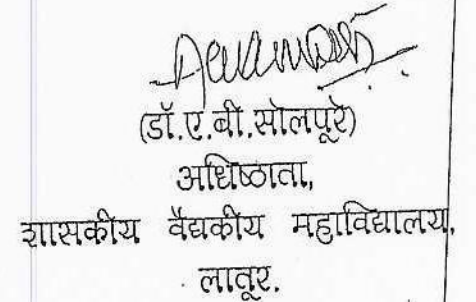 (डॉ.ए.बी.सोलपूरे)
अधिष्ठाता,
शासकीय वैद्यकीय महाविद्यालय,
लातूर.